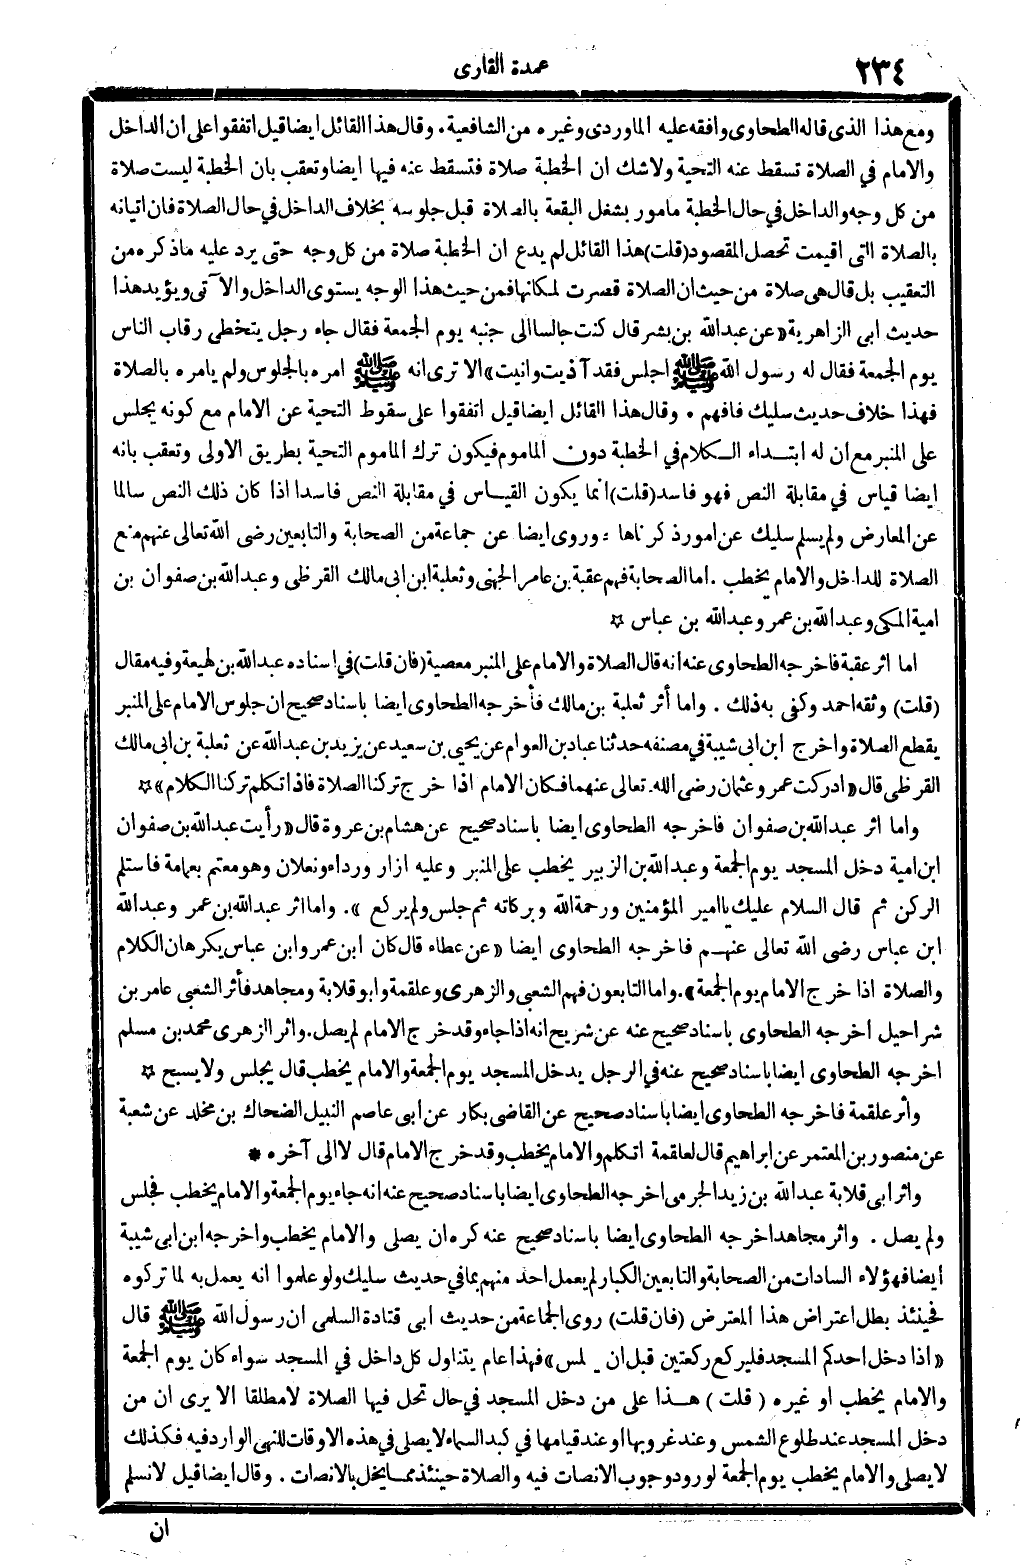 ٢٣٤
عمدة القارى
ومع هذا الذى قاله الطحاوى وافقه عليه الماوردى وغيره من الشافعية . وقال هذا القائل ايضا قيل اتفقوا على ان الداخل
والامام في الصلاة تسقط عنه التحية ولا شك ان الخطبة صلاة فتسقط عنه فيها ايضا وتعقب بان الخطبة ليست صلاة
من كل وجه والداخل في حال الخطبة مامور بشغل البقعة بالصلاة قبل جلوسه بخلاف الداخل في حال الصلاة فان اتيانه
بالصلاة التى اقيمت تحصل المقصود (قلت) هذا القائل لم يدع ان الخطبة صلاة من كل وجه حتى يرد عليه ما ذكره من
التعقيب بل قال هى صلاة من حيث ان الصلاة قصرت لمكانها فمن حيث هذا الوجه يستوى الداخل والآتى ويؤيد هذا
حديث ابى الزاهرية «عن عبدالله بن بشر قال كنت جالسا الى جنبه يوم الجمعة فقال جاء رجل يتخطى رقاب الناس
يوم الجمعة فقال له رسول الله ﷺ اجلس فقد آذيت وانيت» الا ترى انه ﷺ امره بالجلوس ولم يامره بالصلاة
فهذا خلاف حديث سليك فافهم . وقال هذا القائل ايضا قيل اتفقوا على سقوط التحية عن الامام مع كونه يجلس
على المنبر مع ان له ابتداء الكلام في الخطبة دون الماموم فيكون ترك الماموم التحية بطريق الاولى وتعقب بانه
ايضا قياس في مقابلة النص فهو فاسد (قلت) انما يكون القياس في مقابلة النص فاسدا اذا كان ذلك النص سالما
عن المعارض ولم يسلم سليك عن امور ذكرناها : وروى ايضا عن جماعة من الصحابة والتابعين رضى الله تعالى عنهم منع
الصلاة للداخل والامام يخطب . اما الصحابة فهم عقبة بن عامر الجهنى وثعلبة ابن ابى مالك القرظى وعبدالله بن صفوان بن
امية المكى وعبدالله بن عمر وعبدالله بن عباس ☆
اما اثر عقبة فاخرجه الطحاوى عنه انه قال الصلاة والامام على المنبر معصية (فان قلت) في اسناده عبدالله بن لهيعة وفيه مقال
(قلت) وثقه احمد وكفى به ذلك . واما أثر ثعلبة بن مالك فأخرجه الطحاوى ايضا باسناد صحيح ان جلوس الامام على المنبر
يقطع الصلاة واخرج ابن ابى شيبة في مصنفه حدثنا عباد بن العوام عن يحيى بن سعيد عن يزيد بن عبدالله عن ثعلبة بن ابى مالك
القرظى قال «ادركت عمر وعثمان رضى الله تعالى عنهما فكان الامام اذا خرج تركنا الصلاة فاذا تكلم تركنا الكلام» ☆
واما اثر عبدالله بن صفوان فاخرجه الطحاوى ايضا باسناد صحيح عن هشام بن عروة قال «رأيت عبدالله بن صفوان
ابن امية دخل المسجد يوم الجمعة وعبدالله بن الزبير يخطب على المنبر وعليه ازار ورداء ونعلان وهو معتم بعمامة فاستلم
الركن ثم قال السلام عليك يا امير المؤمنين ورحمة الله وبركاته ثم جلس ولم يركع» . واما اثر عبدالله بن عمر وعبدالله
ابن عباس رضى الله تعالى عنهم فاخرجه الطحاوى ايضا «عن عطاء قال كان ابن عمر وابن عباس يكرهان الكلام
والصلاة اذا خرج الامام يوم الجمعة» . واما التابعون فهم الشعبى والزهرى وعلقمة وابو قلابة ومجاهد فأثر الشعبى عامر بن
شراحيل اخرجه الطحاوى باسناد صحيح عنه عن شريح انه اذا جاء وقد خرج الامام لم يصل . واثر الزهرى محمد بن مسلم
اخرجه الطحاوى ايضا باسناد صحيح عنه في الرجل يدخل المسجد يوم الجمعة والامام يخطب قال يجلس ولا يسبح ☆
وأثر علقمة فاخرجه الطحاوى ايضا باسناد صحيح عن القاضى بكار عن ابى عاصم النبيل الضحاك بن مخلد عن شعبة
عن منصور بن المعتمر عن ابراهيم قال لعلقمة اتكلم والامام يخطب وقد خرج الامام قال لا الى آخره *
واثر ابى قلابة عبدالله بن زيد الجرمى اخرجه الطحاوى ايضا باسناد صحيح عنه انه جاء يوم الجمعة والامام يخطب فجلس
ولم يصل . واثر مجاهد اخرجه الطحاوى ايضا باسناد صحيح عنه كره ان يصلى والامام يخطب واخرجه ابن ابى شيبة
أيضا فهؤلاء السادات من الصحابة والتابعين الكبار لم يعمل احد منهم بما في حديث سليك ولو علموا انه يعمل به لما تركوه
فحينئذ بطل اعتراض هذا المعترض (فان قلت) روى الجماعة من حديث ابى قتادة السلمى ان رسول الله ﷺ قال
«اذا دخل احدكم المسجد فليركع ركعتين قبل ان يجلس» فهذا عام يتناول كل داخل في المسجد سواء كان يوم الجمعة
والامام يخطب او غيره (قلت) هذا على من دخل المسجد في حال تحل فيها الصلاة لا مطلقا الا يرى ان من
دخل المسجد عند طلوع الشمس وعند غروبها او عند قيامها في كبد السماء لا يصلى في هذه الاوقات للنهى الوارد فيه فكذلك
لا يصلى والامام يخطب يوم الجمعة لورود وجوب الانصات فيه والصلاة حينئذ مما يخل بالانصات . وقال ايضا قيل لا نسلم
ان